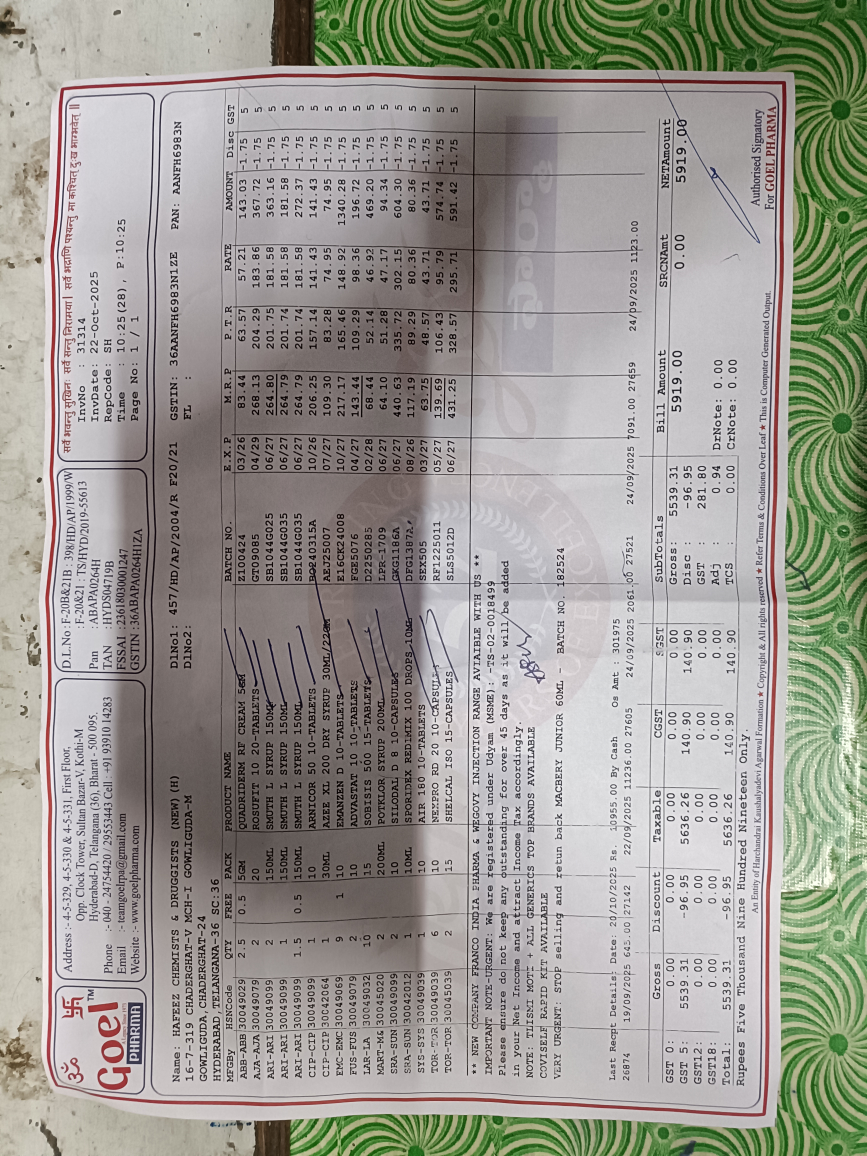 ॐ 卐
Goel™
PHARMA
Address :- 4-5-329, 4-5-330 & 4-5-331, First Floor,
Opp. Clock Tower, Sultan Bazar-V, Kothi-M
Hyderabad-D, Telangana (36), Bharat - 500 095.
Phone :- 040 - 24754420 / 29553443 Cell : +91 93910 14283
Email :- teamgoelpa@gmail.com
Website :- www.goelpharma.com
D.L.No : F-20B&21B : 398/HD/AP/1999/W
: F-20&21 : TS/HYD/2019-55613
Pan : ABAPA0264H
TAN : HYDS04719B
FSSAI : 23618030001247
GSTIN : 36ABAPA0264H1ZA
सर्वे भवन्तु सुखिनः सर्वे सन्तु निरामया। सर्वे भद्राणि पश्यन्तु मा कश्चित् दुःख भाग्भवेत् ॥
InvNo : 31314
InvDate: 22-Oct-2025
RepCode: SH
Time : 10:25(28), P:10:25
Page No: 1 / 1
Name: HAFEEZ CHEMISTS & DRUGGISTS (NEW)(H) DlNo1: 457/HD/AP/2004/R F20/21 GSTIN: 36AANFH6983N1ZE PAN: AANFH6983N
16-7-319 CHADERGHAT-V MCH-I GOWLIGUDA-M DlNo2: FL :
GOWLIGUDA,CHADERGHAT-24
HYDERABAD,TELANGANA-36 SC:36
MFGBy HSNCode QTY FREE PACK PRODUCT NAME BATCH NO. E.X.P M.R.P P.T.R RATE AMOUNT Disc GST
ABB-ABB 30049029 2.5 0.5 5GM QUADRIDERM RF CREAM 5GM Z100424 03/26 83.44 63.57 57.21 143.03 -1.75 5
AJA-AJA 30049079 2 20 ROSUFIT 10 20-TABLETS GT09085 04/29 268.13 204.29 183.86 367.72 -1.75 5
ARI-ARI 30049099 2 150ML SMUTH L SYRUP 150ML SB1044G025 06/27 264.80 201.75 181.58 363.16 -1.75 5
ARI-ARI 30049099 1 150ML SMUTH L SYRUP 150ML SB1044G035 06/27 264.79 201.74 181.58 181.58 -1.75 5
ARI-ARI 30049099 1.5 0.5 150ML SMUTH L SYRUP 150ML SB1044G035 06/27 264.79 201.74 181.58 272.37 -1.75 5
CIP-CIP 30049099 1 10 ARNICOR 50 10-TABLETS 10/26 206.25 157.14 141.43 141.43 -1.75 5
CIP-CIP 30042064 1 30ML AZEE XL 200 DRY SYRUP 30ML/22GM AEJ725007 07/27 109.30 83.28 74.95 74.95 -1.75 5
EMC-EMC 30049069 9 1 10 EMANZEN D 10-TABLETS E16CK24008 10/27 217.17 165.46 148.92 1340.28 -1.75 5
FUS-FUS 30049079 2 10 ADVASTAT 10 10_TABLETS FGE5076 04/27 143.44 109.29 98.36 196.72 -1.75 5
LAR-LA 30049032 10 15 SOBISIS 500 15-TABLETS D2250285 02/28 68.44 52.14 46.92 469.20 -1.75 5
MART-M& 30045020 2 200ML POTKLOR SYRUP 200ML LPR-1709 06/27 64.10 51.28 47.17 94.34 -1.75 5
SRA-SUN 30049099 2 10 SILODAL D 8 10-CAPSULES GKG1186A 06/27 440.63 335.72 302.15 604.30 -1.75 5
SRA-SUN 30042012 1 10ML SPORIDEX REDIMIX 100 DROPS 10ML DFG1387A 08/26 117.19 89.29 80.36 80.36 -1.75 5
SYS-SYS 30049039 1 10 AIR 180 10-TABLETS SEX505 03/27 63.75 48.57 43.71 43.71 -1.75 5
TOR-TOR 30049039 6 10 NEXPRO RD 20 10-CAPSULE RF1225011 05/27 139.69 106.43 95.79 574.74 -1.75 5
TOR-TOR 30045039 2 15 SHELCAL ISO 15-CAPSULES SLS5012D 06/27 431.25 328.57 295.71 591.42 -1.75 5
** NEW COMPANY FRANCO INDIA PHARMA & WEGOVY INJECTION RANGE AVAIBLE WITH US **
IMPORTANT NOTE-URGENT: We are registered under Udyam (MSME): -TS-02-0018499
Please ensure do not keep any outstanding for over 45 days as it will be added
in your Net Income and attract Income Tax accordingly.
NOTE: THISMI MOTI + ALL GENERICS TOP BRANDS AVAILABLE
COVISELF RAPID KIT AVAILABLE
VERY URGENT: STOP selling and retun back MACBERY JUNIOR 60ML - BATCH NO. 182524
Last Recpt Details: Date: 20/10/2025 Rs. 10955.00 By Cash Os Amt : 301975
26874 19/09/2025 645.00 27142 22/09/2025 11236.00 27605 24/09/2025 2061.00 27521 24/09/2025 7091.00 27659 24/09/2025 1123.00
Gross Discount Taxable CGST SGST SubTotals Bill Amount SRCNAmt NETAmount
GST 0: 0.00 0.00 0.00 0.00 0.00 Gross: 5539.31 5919.00 0.00 5919.00
GST 5: 5539.31 -96.95 5636.26 140.90 140.90 Disc : -96.95
GST12: 0.00 0.00 0.00 0.00 0.00 GST : 281.80
GST18: 0.00 0.00 0.00 0.00 0.00 Adj : 0.94 DrNote: 0.00
Total: 5539.31 -96.95 5636.26 140.90 140.90 TCS : 0.00 CrNote: 0.00
Rupees Five Thousand Nine Hundred Nineteen Only.
An Entity of Harchandrai Kaushalyadevi Agarwal Formation ★ Copyright & All rights reserved ★ Refer Terms & Conditions Over Leaf ★ This is Computer Generated Output.
Authorised Signatory
For GOEL PHARMA